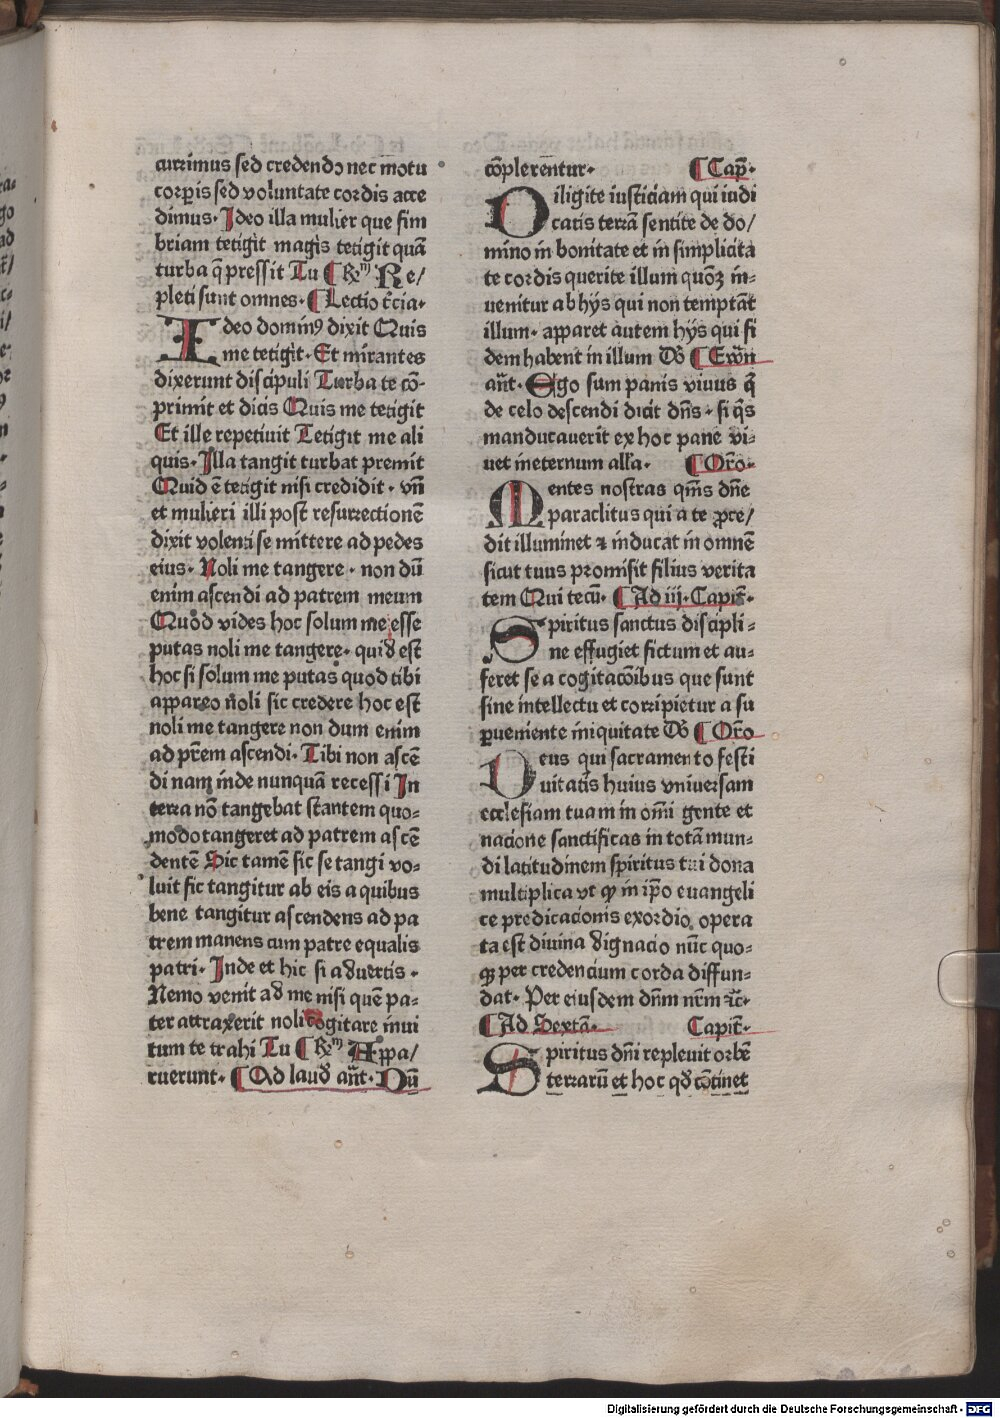 currimus sed credendo nec motu
corꝑis sed voluntate cordis acce
dimus· Ideo illa mulier que fim
briam tetigit magis tetigit quā
turba q̄ pressit Tu ¶ Rm̄ Re/
pleti sunt omnes· ¶ Lectio t̄cia·
Ideo domin9 dixit Quis
me tetigit· Et mirantes
dixerunt discipuli Turba te cō-
primit et dicis Quis me tetigit
Et ille repetiuit Tetigit me ali
quis· Illa tangit turbat premit
Quid ē tetigit nisi credidit· vn̄
et mulieri illi post resurrectionē
dixit volenti se mittere ad pedes
eius· Noli me tangere· non dū
enim ascendi ad patrem meum
Quod vides hoc solum me esse
putas noli me tangere· quid est
hoc si solum me putas quod tibi
appareo noli sic credere hoc est
noli me tangere non dum enim
ad pr̄em ascendi· Tibi non ascē
di nam inde nunquā recessi In
terra nō tangebat stantem quo-
modo tangeret ad patrem ascē
dentē Sic tamē sic se tangi vo-
luit sic tangitur ab eis a quibus
bene tangitur ascendens ad pa
trem manens cum patre equalis
patri· Inde et hic si aduertis·
Nemo venit ad me nisi quē pa-
ter attraxerit noli cogitare inui
tum te trahi Tu ¶ Rm̄ Appa/
ruerunt· ¶ Ad laud̄ an̄t· Dū
cōplerentur· ¶ Cap̄·
Diligite iusticiam qui iudi
catis terrā sentite de do/
mino in bonitate et in simplicita
te cordis querite illum quoꝫ in-
uenitur ab hijs qui non temptāt
illum· apparet autem hijs qui fi
dem habent in illum D̄s ¶ Ew̄n
an̄t· Ego sum panis viuus q̄
de celo descendi dicit dn̄s· si q̄s
manducauerit ex hoc pane vi-
uet ineternum all̄a· ¶ Or̄o·
Mentes nostras qm̄s dn̄e
paraclitus qui a te ꝓce/
dit illuminet ⁊ inducat in omnē
sicut tuus promisit filius verita
tem Qui tecū· ¶ Ad iij· Capit̄·
Spiritus sanctus discipli-
ne effugiet fictum et au-
feret se a cogitacōibus que sunt
sine intellectu et corripietur a su
ꝑueniente iniquitate D̄s ¶ Or̄o
Deus qui sacramento festi
uitatis huius vniuersam
ecclesiam tuam in om̄i gente et
nacione sanctificas in totā mun-
di latitudinem spiritus tui dona
multiplica vt qꝫ in ip̄o euangeli
ce predicacionis exordio opera
ta est diuina dignacio nūc quo-
qꝫ per credencium corda diffun-
dat· Per eiusdem dn̄m nr̄m ⁊c̄·
¶ Ad Sextā· Capit̄·
Spiritus dn̄i repleuit orbē
terrarū et hoc qd̄ cōtinet
Digitalisierung gefördert durch die Deutsche Forschungsgemeinschaft - DFG